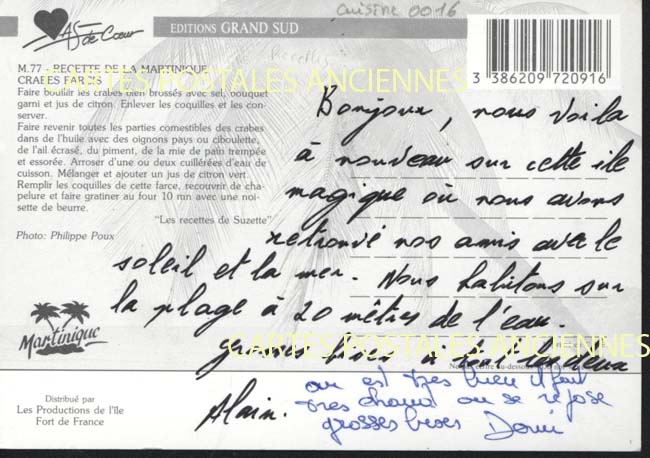 cuisine 0016
AS de Cœur
EDITIONS GRAND SUD
Recettes
3 386209 720916
M.77 - RECETTE DE LA MARTINIQUE
CRABES FARCIS
Faire bouillir les crabes bien brossés avec sel, bouquet
garni et jus de citron. Enlever les coquilles et les con-
server.
Faire revenir toutes les parties comestibles des crabes
dans de l'huile avec des oignons pays ou ciboulette,
de l'ail écrasé, du piment, de la mie de pain trempée
et essorée. Arroser d'une ou deux cuillérées d'eau de
cuisson. Mélanger et ajouter un jus de citron vert.
Remplir les coquilles de cette farce, recouvrir de cha-
pelure et faire gratiner au four 10 mn avec une noi-
sette de beurre.
"Les recettes de Suzette"
Photo: Philippe Poux
CARTES POSTALES ANCIENNES
Bonjour, nous voila
à nouveau sur cette ile
magique où nous avons
retrouvé nos amis avec le
soleil et la mer. Nous habitons sur
la plage à 20 mètres de l'eau.
CARTES POSTALES ANCIENNES
Martinique
à tous les deux
Alain.
on est très bien il fait
très chaud on se repose
grosses bises
Distribué par
Les Productions de l'île
Fort de France